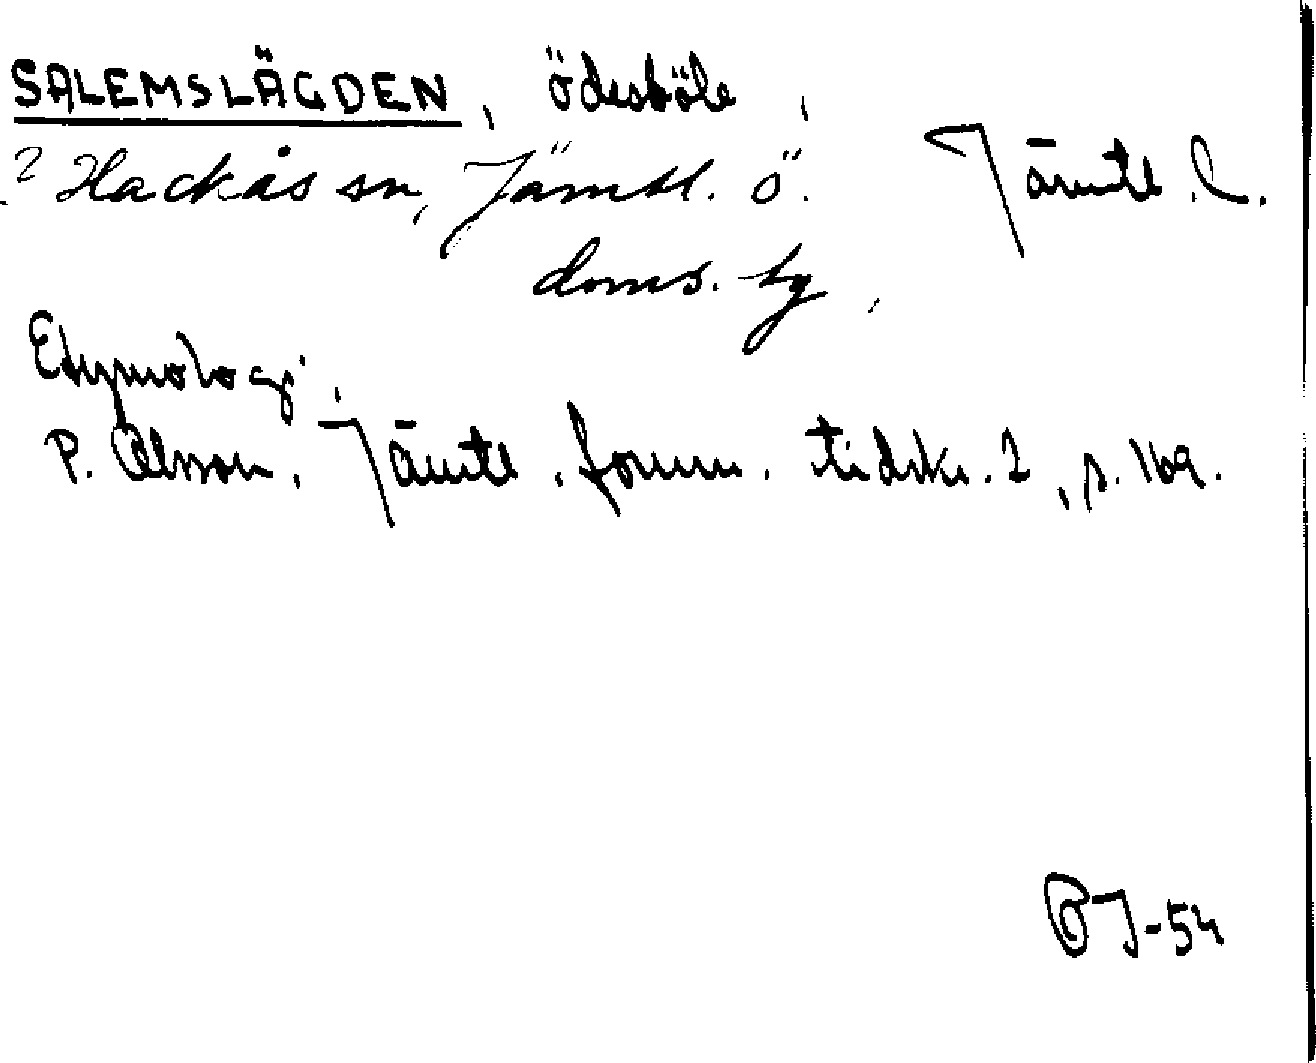 SALEMSLÄGDEN, ödesböle,
? Hackås sn, Jämtl. ö. Jämtl. l.
doms. hg,
Etymologi:
P. Olsson, Jämtl. fornm. tidskr. 2, s. 169.
OJ-54